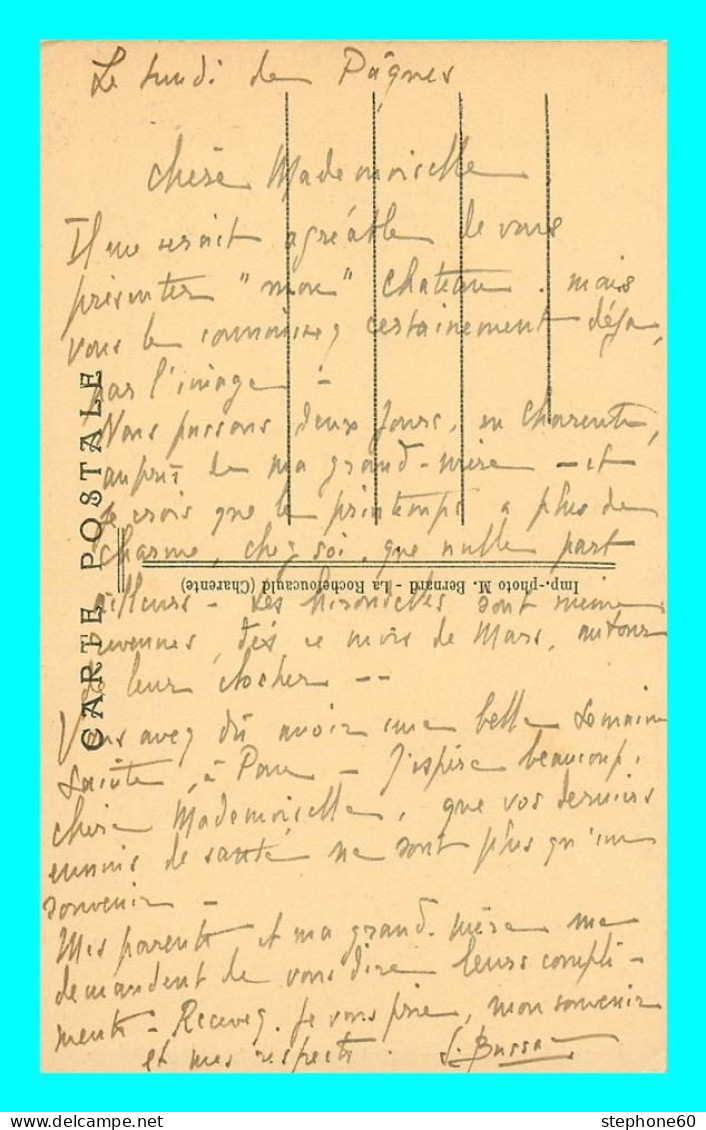 Le lundi de Pâques
Chère Mademoiselle
Il me serait agréable de vous
présenter "mon" chateau. mais
vous le connaissez certainement déjà,
par l'image -
Nous passons deux jours, en Charente,
auprès de ma grand-mère - et
je crois que le printemps a plus de
charme, chez soi, que nulle part
ailleurs - Les hirondelles sont même
revenues, dès ce mois de Mars, autour
de leur clocher --
Vous avez dû avoir une belle Semaine
Sainte, à Pau - J'espère beaucoup,
chère Mademoiselle, que vos derniers
ennuis de santé ne sont plus qu'un
souvenir -
Mes parents et ma grand-mère me
demandent de vous dire leurs compli-
ments - Recevez, je vous prie, mon souvenir
et mes respects.
CARTE POSTALE
Imp.-photo M. Bernard - La Rochefoucauld (Charente)
stephone60